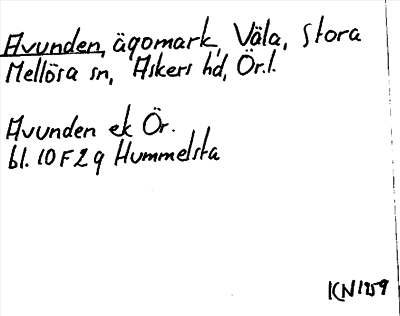 Avunden, ägomark, Väla, Stora
Mellösa sn, Askers hd, Ör.l.
Avunden ek Ör.
bl. 10 F 2 g Hummelsta
KN 1959